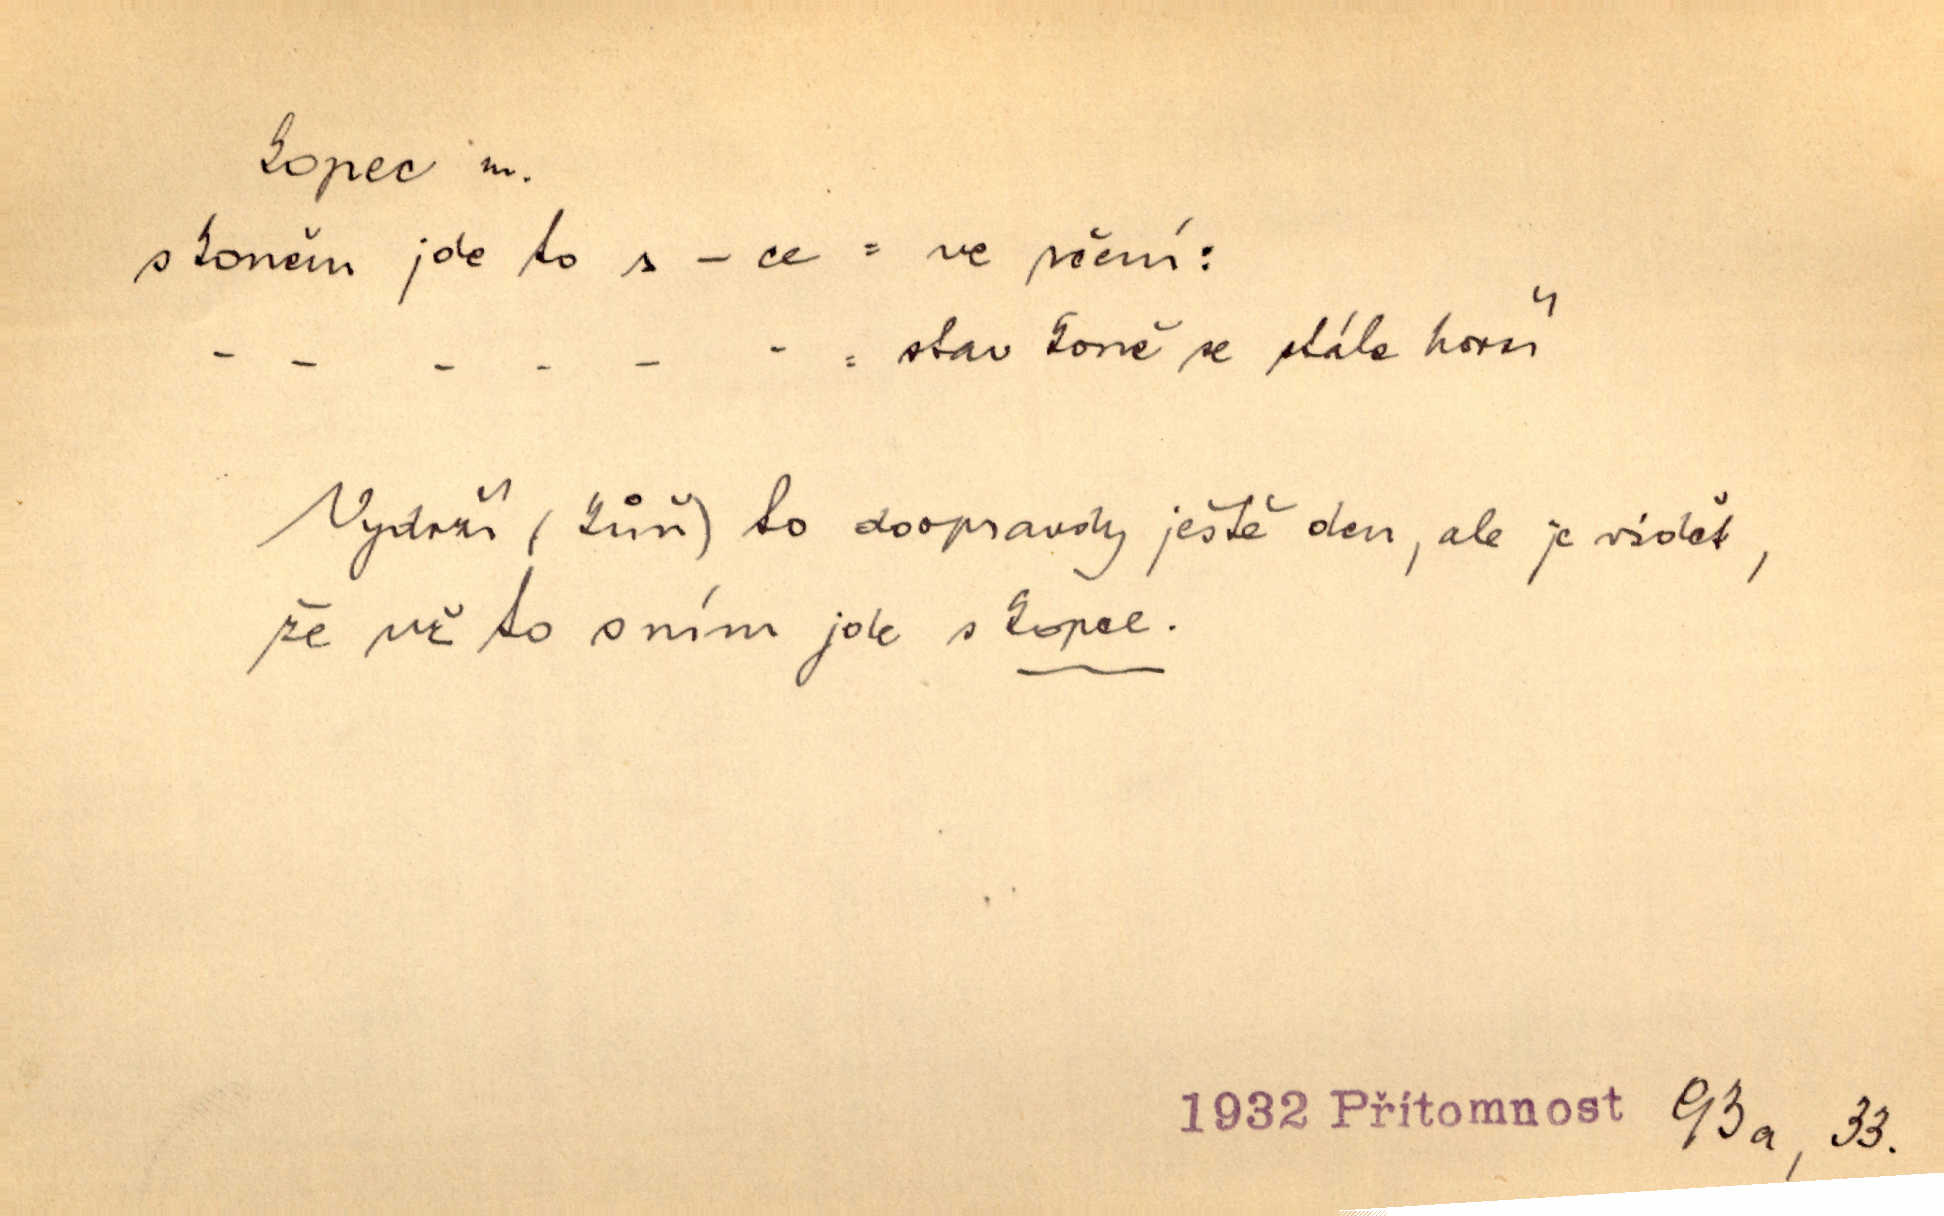 kopec m.
s koněm jde to s – ce = ve rčení:
– – – – – – = stav koně se stále horší
Vydrží (kůň) to doopravdy ještě den, ale je vidět,
že už to s ním jde s kopce.
1932 Přítomnost 93a, 33.